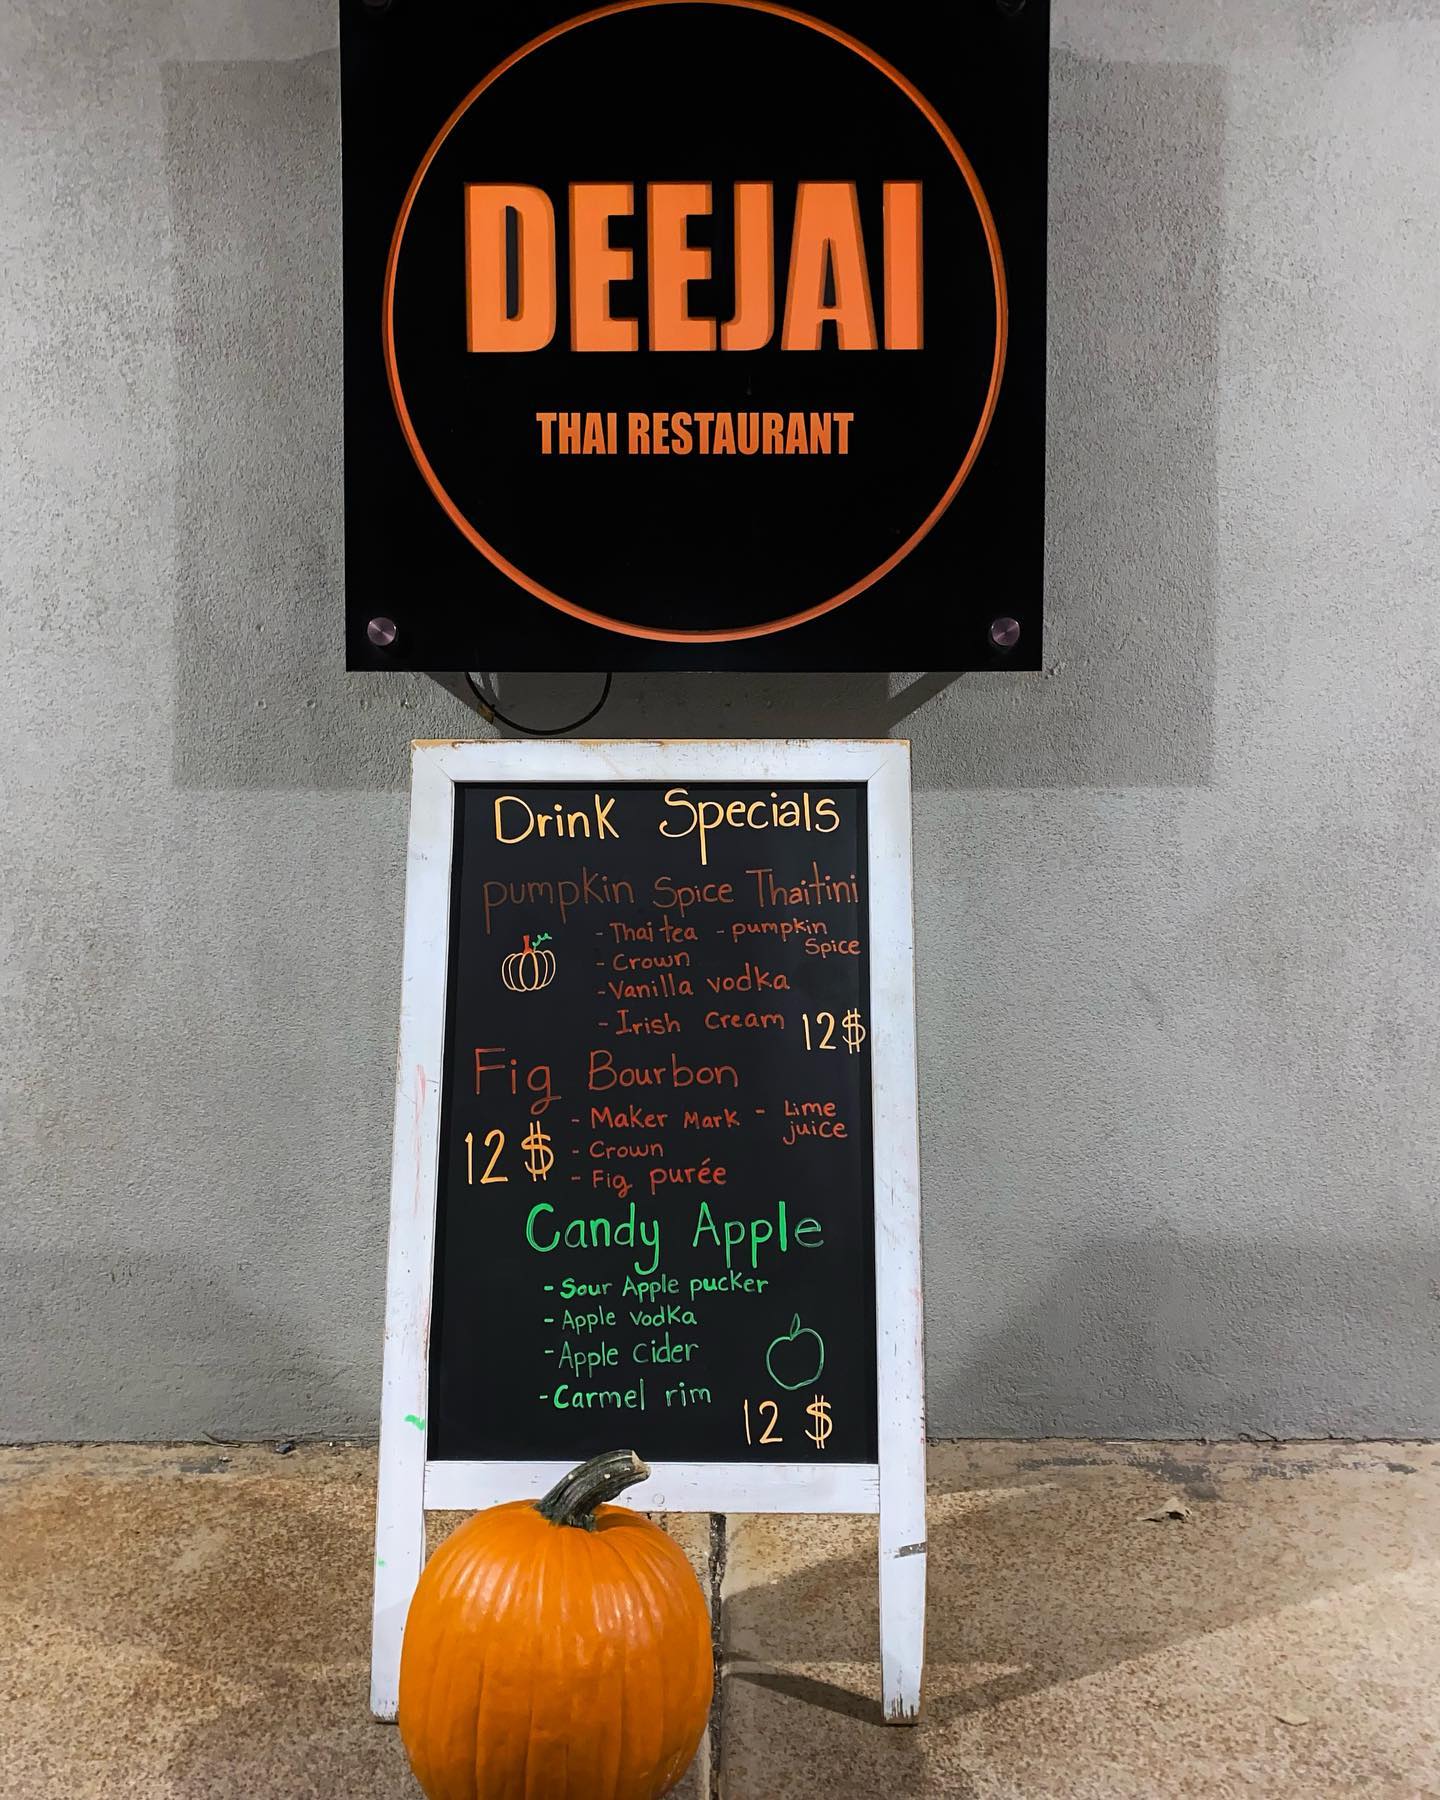 DEEJAI
THAI RESTAURANT
Drink Specials
pumpkin Spice Thaitini
- Thai tea - pumpkin
Spice
- Crown
- Vanilla vodka
- Irish Cream 12$
Fig Bourbon
- Maker Mark - Lime
juice
12 $ - Crown
- Fig purée
Candy Apple
- Sour Apple pucker
- Apple vodka
- Apple cider
- Carmel rim
12 $